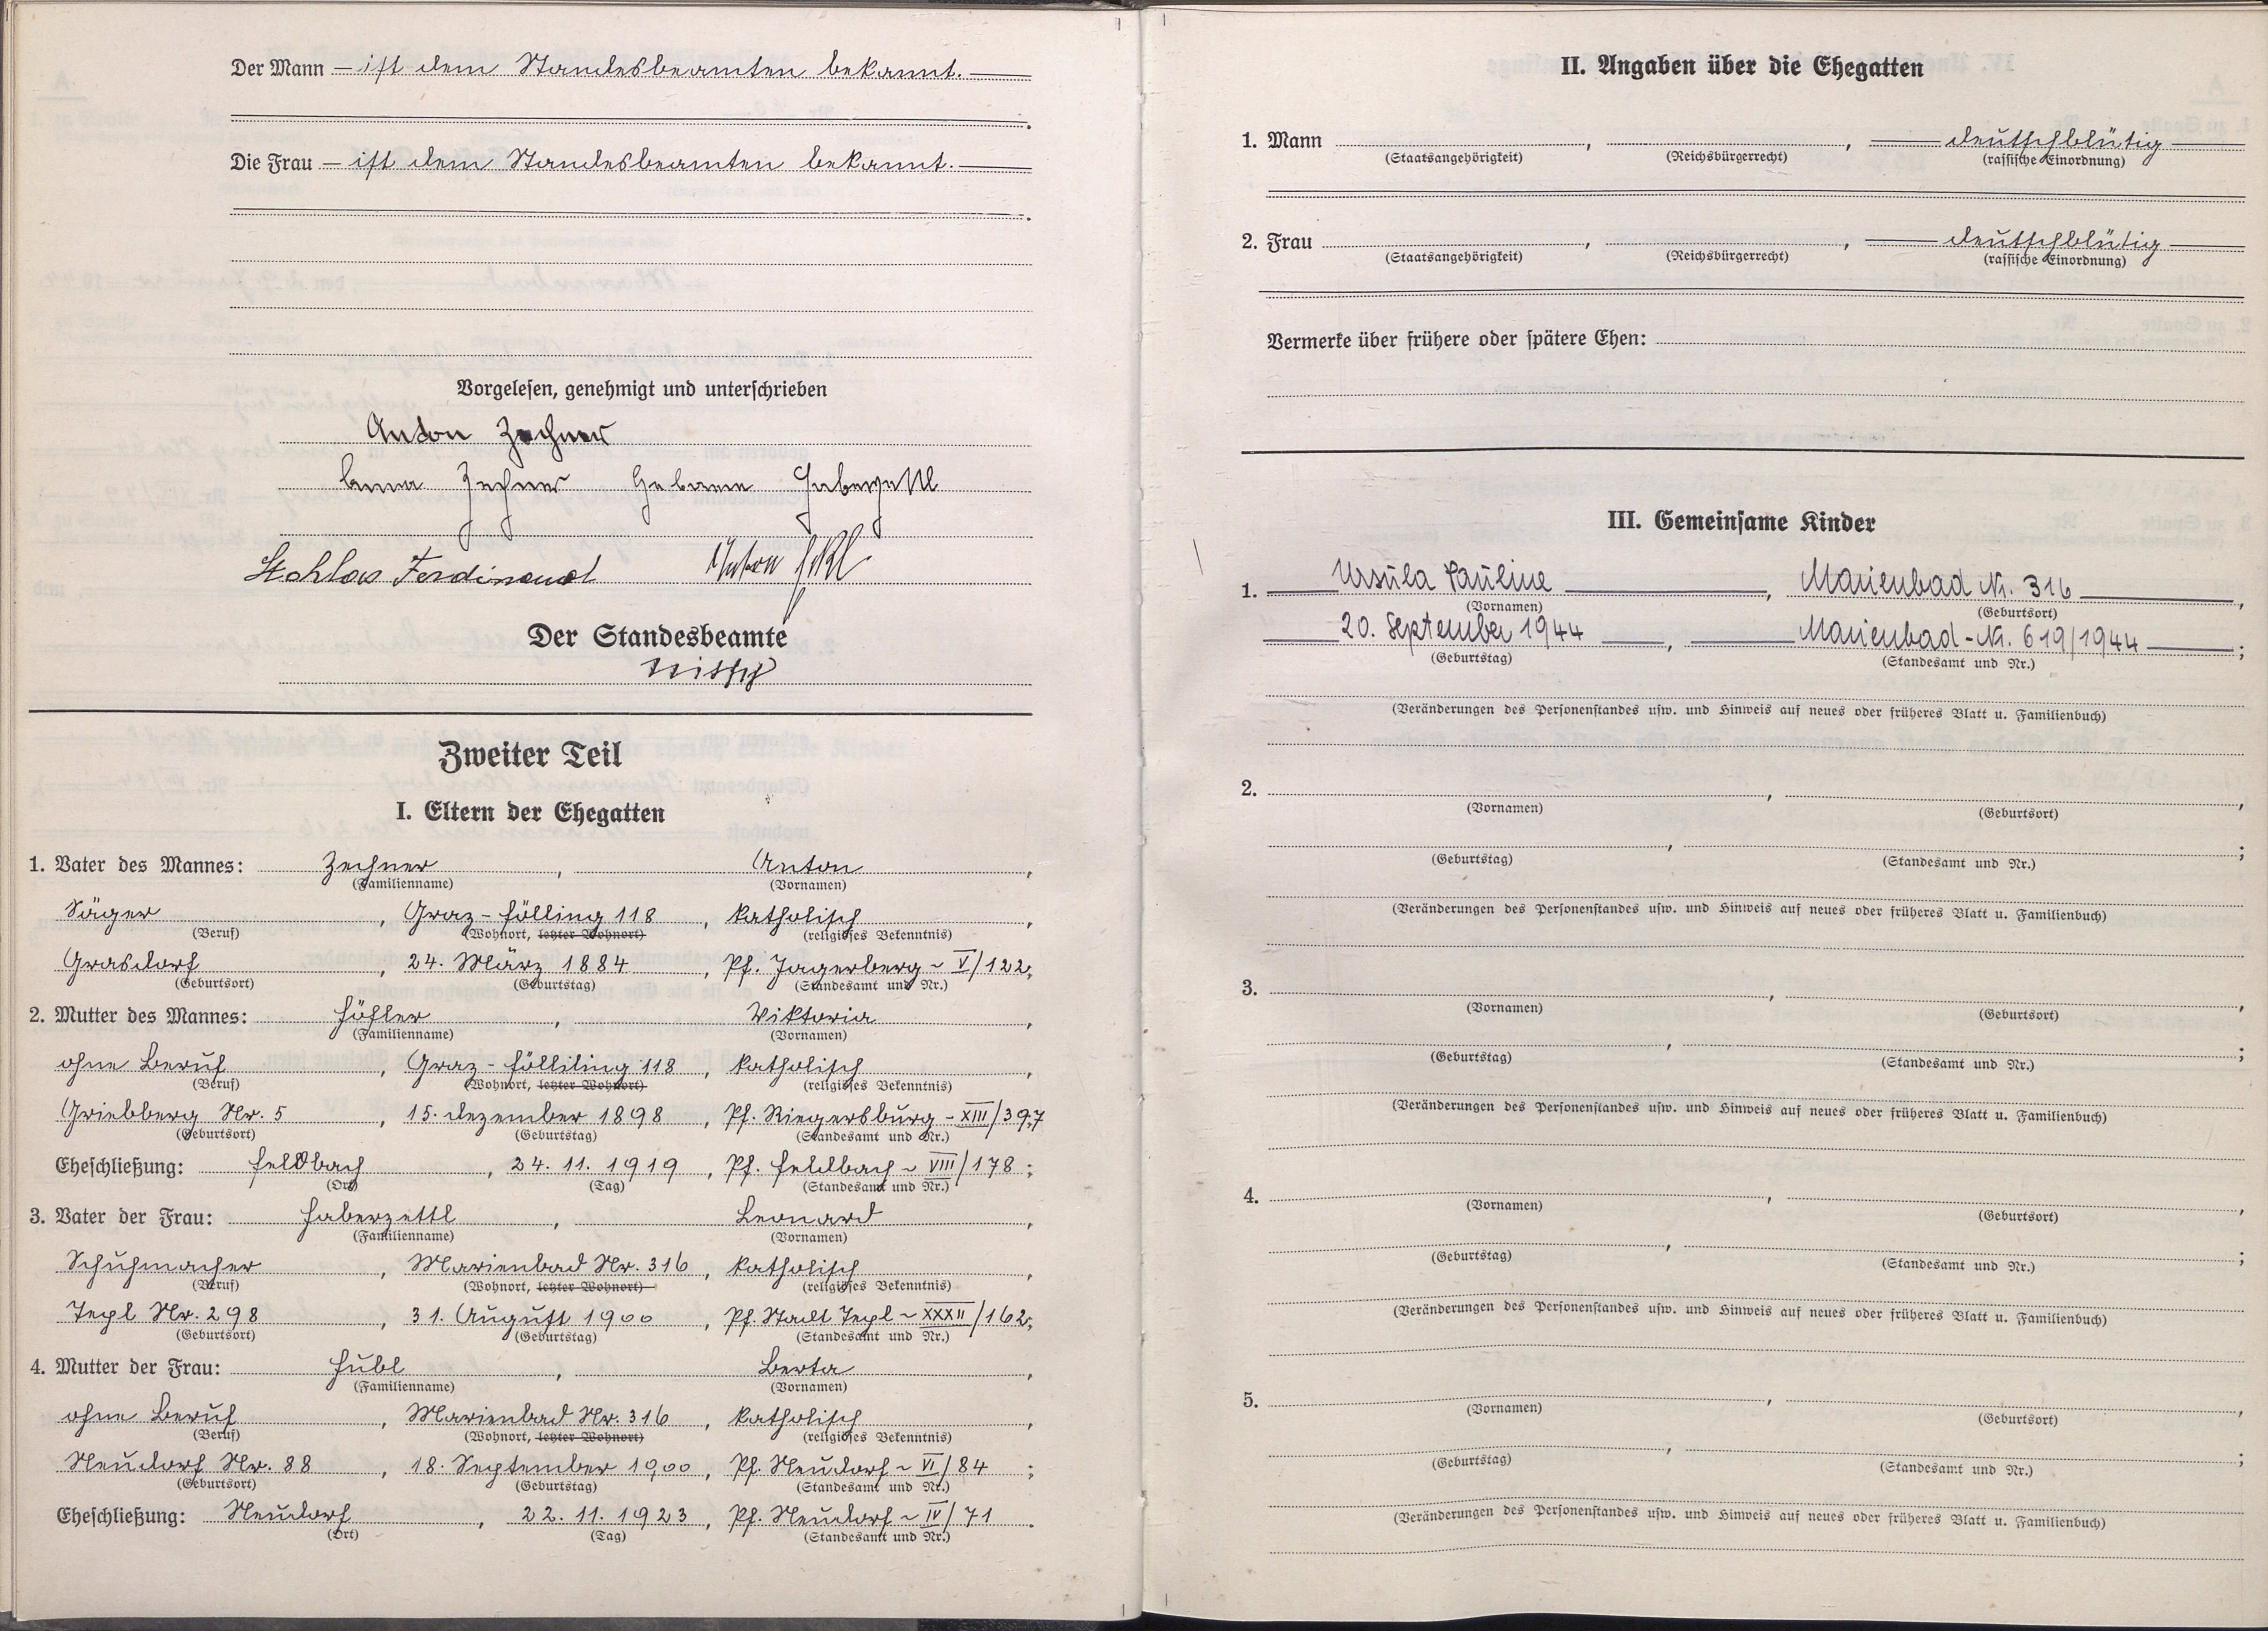 Der Mann — ist dem Standesbeamten bekannt. —
Die Frau — ist dem Standesbeamten bekannt. —
Vorgelesen, genehmigt und unterschrieben
Anton Zechner
Anna Zechner Geborene Haberzettl
Ferdinand Anton
Der Standesbeamte
Zweiter Teil
I. Eltern der Ehegatten
1. Vater des Mannes: Zechner, Anton,
(Familienname) (Vornamen)
Säger, Graz-Fölling 118, katholisch,
(Beruf) (Wohnort, letzter Wohnort) (religiöses Bekenntnis)
Grasdorf, 24. März 1884, Pf. Jagerberg - V/122;
(Geburtsort) (Geburtstag) (Standesamt und Nr.)
2. Mutter des Mannes: Höfler, Viktoria,
(Familienname) (Vornamen)
ohne Beruf, Graz-Fölliling 118, katholisch,
(Beruf) (Wohnort, letzter Wohnort) (religiöses Bekenntnis)
Nr. 5, 15. Dezember 1898, Pf. Riegersburg - XIII/397
(Geburtsort) (Geburtstag) (Standesamt und Nr.)
Eheschließung: Feldbach, 24. 11. 1919, Pf. Feldbach - VIII/178;
(Ort) (Tag) (Standesamt und Nr.)
3. Vater der Frau: Haberzettl, Leonard,
(Familienname) (Vornamen)
Schuhmacher, Marienbad Nr. 316, katholisch,
(Beruf) (Wohnort, letzter Wohnort) (religiöses Bekenntnis)
Tepl Nr. 298, 31. August 1900, Pf. Stadt Tepl - XXXII/162;
(Geburtsort) (Geburtstag) (Standesamt und Nr.)
4. Mutter der Frau: Hübl, Berta,
(Familienname) (Vornamen)
ohne Beruf, Marienbad Nr. 316, katholisch,
(Beruf) (Wohnort, letzter Wohnort) (religiöses Bekenntnis)
Neudorf Nr. 88, 18. September 1900, Pf. Neudorf - VI/84;
(Geburtsort) (Geburtstag) (Standesamt und Nr.)
Eheschließung: Neudorf, 22. 11. 1923, Pf. Neudorf - IV/71.
(Ort) (Tag) (Standesamt und Nr.)
II. Angaben über die Ehegatten
1. Mann , , — deutschblütig —
(Staatsangehörigkeit) (Reichsbürgerrecht) (rassische Einordnung)
2. Frau , , — deutschblütig —
(Staatsangehörigkeit) (Reichsbürgerrecht) (rassische Einordnung)
Vermerke über frühere oder spätere Ehen:
III. Gemeinsame Kinder
1. — Ursula Pauline —, Marienbad Nr. 316 —,
(Vornamen) (Geburtsort)
— 20. September 1944 —, — Marienbad - Nr. 619/1944 —;
(Geburtstag) (Standesamt und Nr.)
(Veränderungen des Personenstandes usw. und Hinweis auf neues oder früheres Blatt u. Familienbuch)
2. , ,
(Vornamen) (Geburtsort)
, ;
(Geburtstag) (Standesamt und Nr.)
(Veränderungen des Personenstandes usw. und Hinweis auf neues oder früheres Blatt u. Familienbuch)
3. , ,
(Vornamen) (Geburtsort)
, ;
(Geburtstag) (Standesamt und Nr.)
(Veränderungen des Personenstandes usw. und Hinweis auf neues oder früheres Blatt u. Familienbuch)
4. , ,
(Vornamen) (Geburtsort)
, ;
(Geburtstag) (Standesamt und Nr.)
(Veränderungen des Personenstandes usw. und Hinweis auf neues oder früheres Blatt u. Familienbuch)
5. , ,
(Vornamen) (Geburtsort)
, ;
(Geburtstag) (Standesamt und Nr.)
(Veränderungen des Personenstandes usw. und Hinweis auf neues oder früheres Blatt u. Familienbuch)